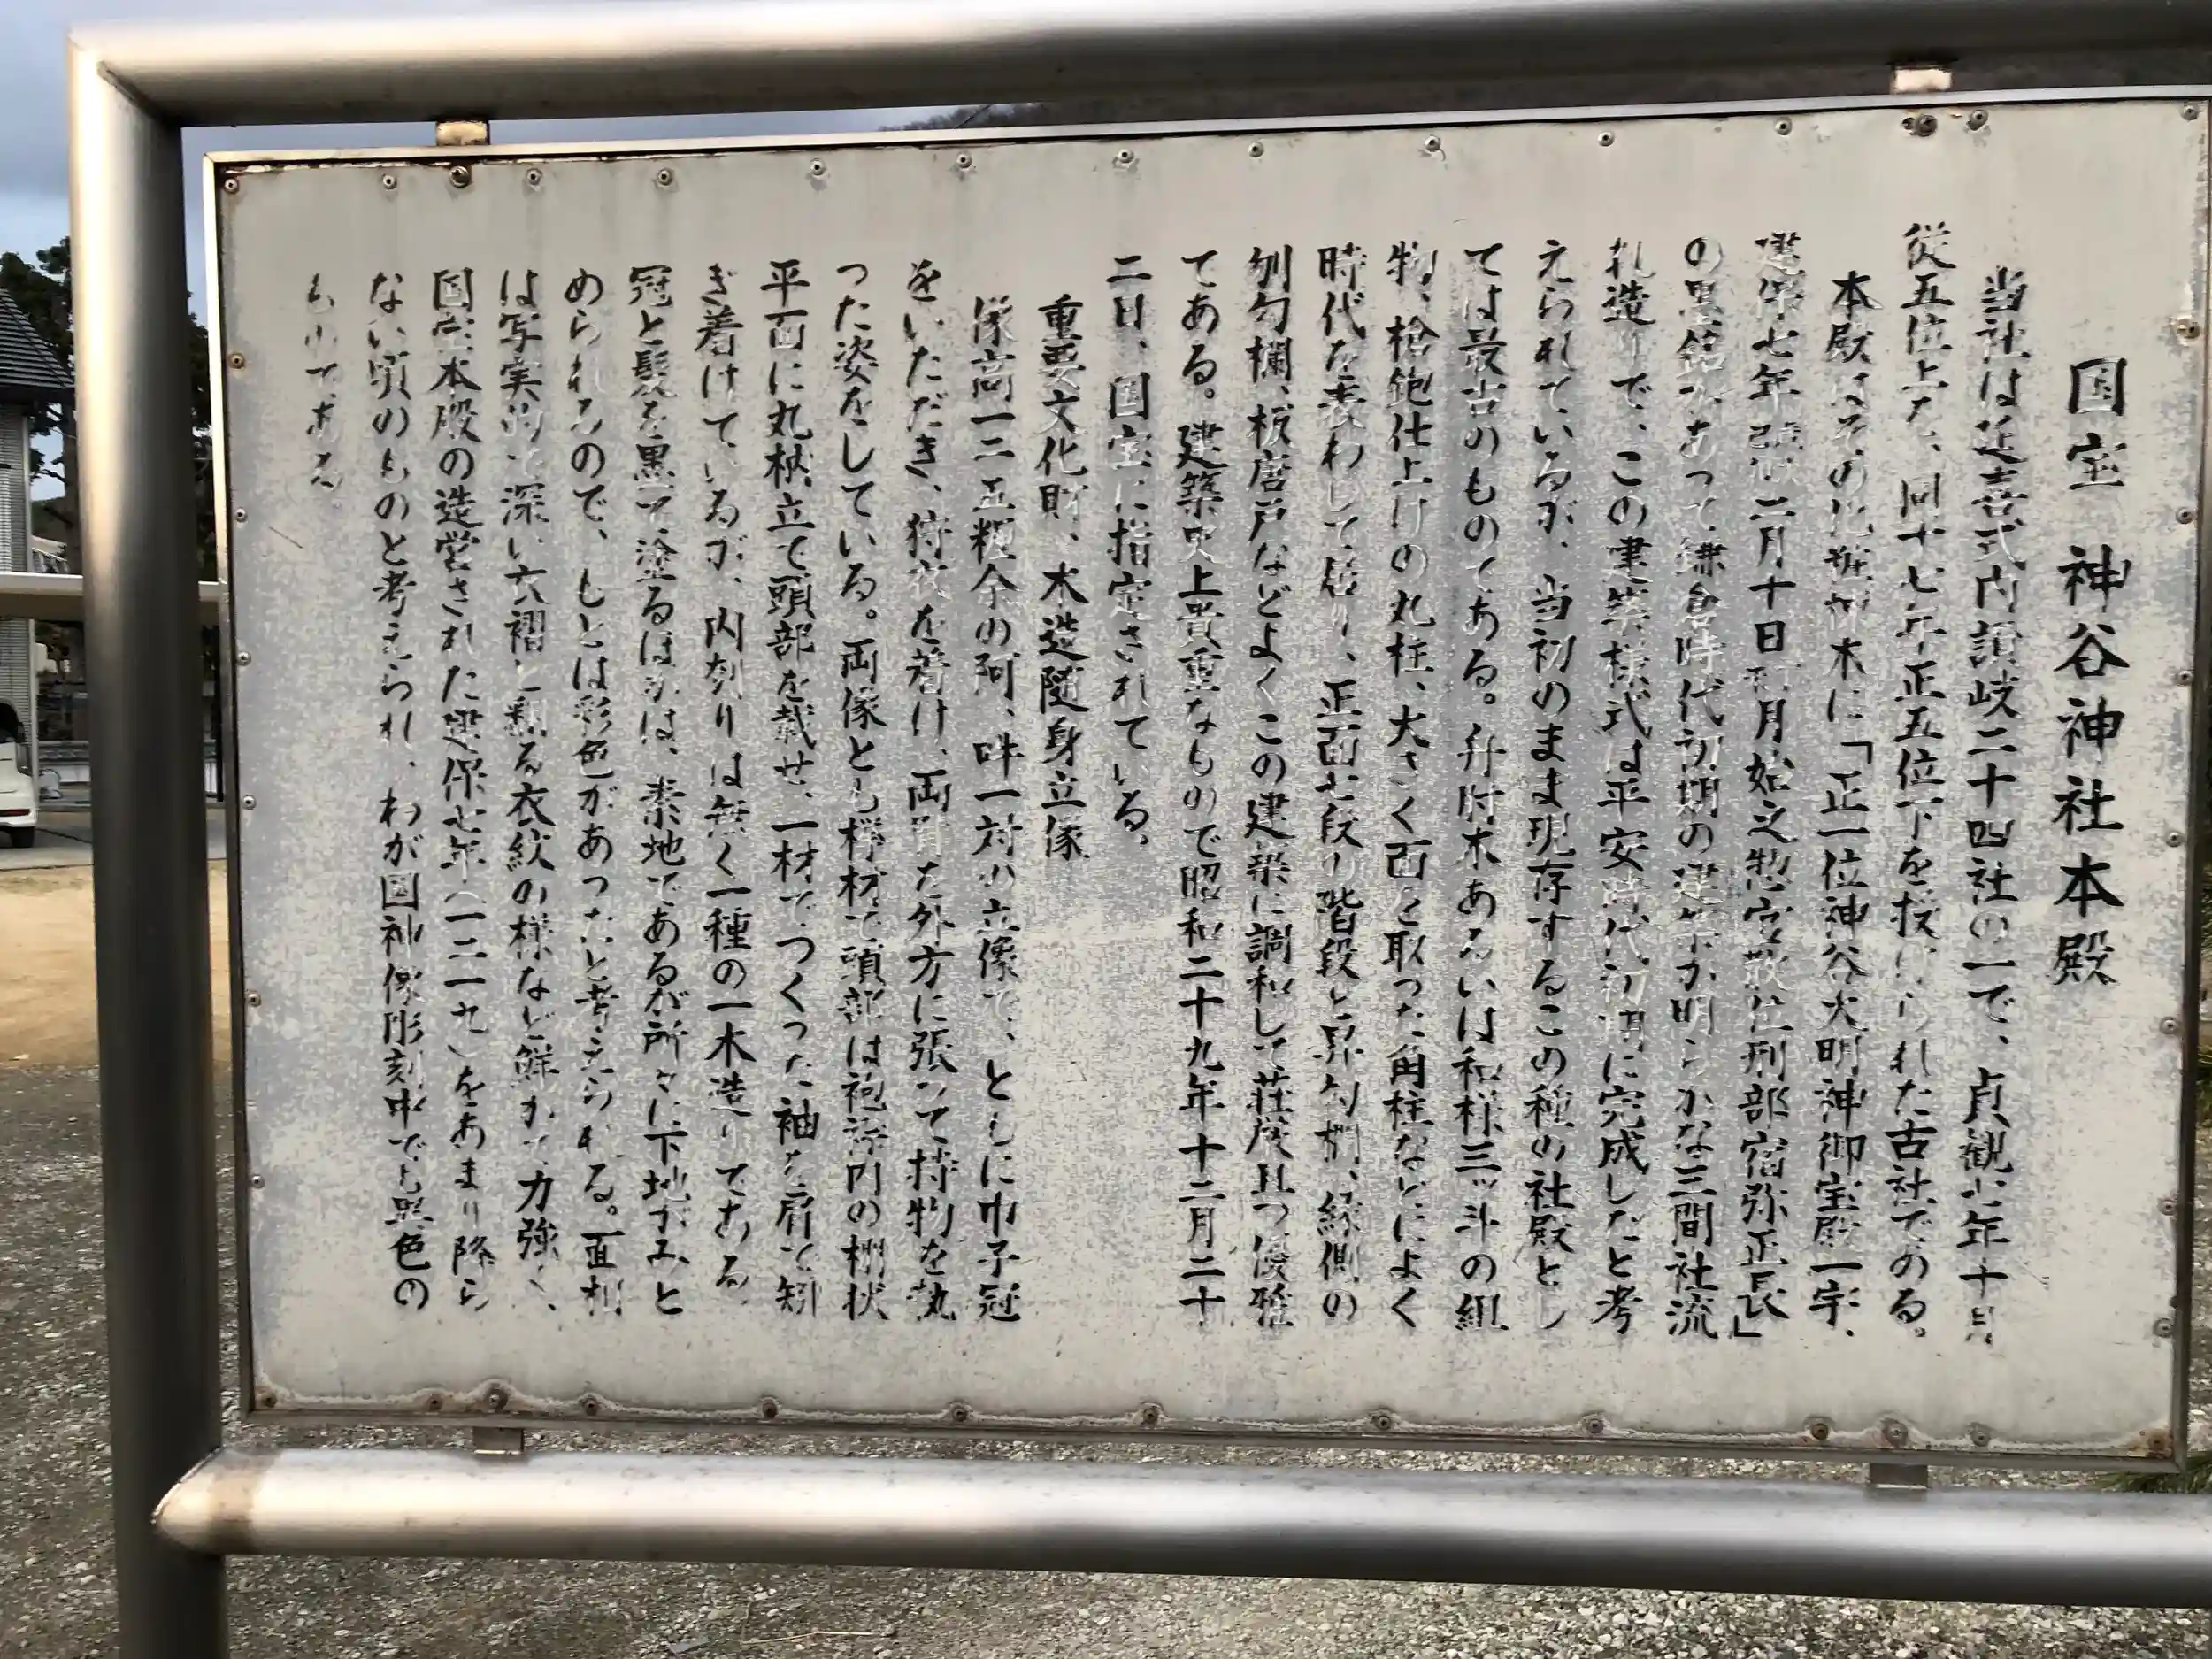 国宝 神谷神社本殿
当社は延喜式内讃岐二十四社の一で、貞観七年十月
従五位上を、同十七年正五位下を授けられた古社である。
本殿はその化粧棟木に「正一位神谷大明神御宝殿一宇、
建保七年歳次二月十日 月始之惣官散位刑部宿弥正長」
の墨銘があって鎌倉時代初期の建築が明らかな三間社流
れ造りで、この建築様式は平安時代初期に完成したと考
えられているが、当初のまま現存するこの種の社殿とし
ては最古のものである。舟肘木あるいは和様三ッ斗の組
物、槍鉋仕上げの丸柱、大きく面を取った角柱などによく
時代を表わして居り、正面七段の階段と昇勾欄、縁側の
刎勾欄、板唐戸などよくこの建築に調和して荘茂且つ優雅
である。建築史上貴重なもので昭和二十九年十二月二十
二日、国宝に指定されている。
重要文化財、木造随身立像
像高一二五糎余の阿、吽一対の立像で、ともに巾子冠
をいただき、狩衣を着け、両肩を外方に張って持物を執
った姿をしている。両像とも欅材で頭部は袍 内の棚状
平面に丸枘立て頭部を載せ、一材でつくった袖を肩で矧
ぎ着けているが、内刳りは無く一種の一木造りである
冠と髪を黒で塗るほかは、素地であるが所々に下地がみと
められるので、もとは彩色があったと考えられる。面相
は写実的で深い六褶と翻る衣紋の様など鮮かで力強く、
国宝本殿の造営された建保七年(一二一九)をあまり降ら
ない頃のものと考えられ、わが国神像彫刻中でも異色の
ものである。